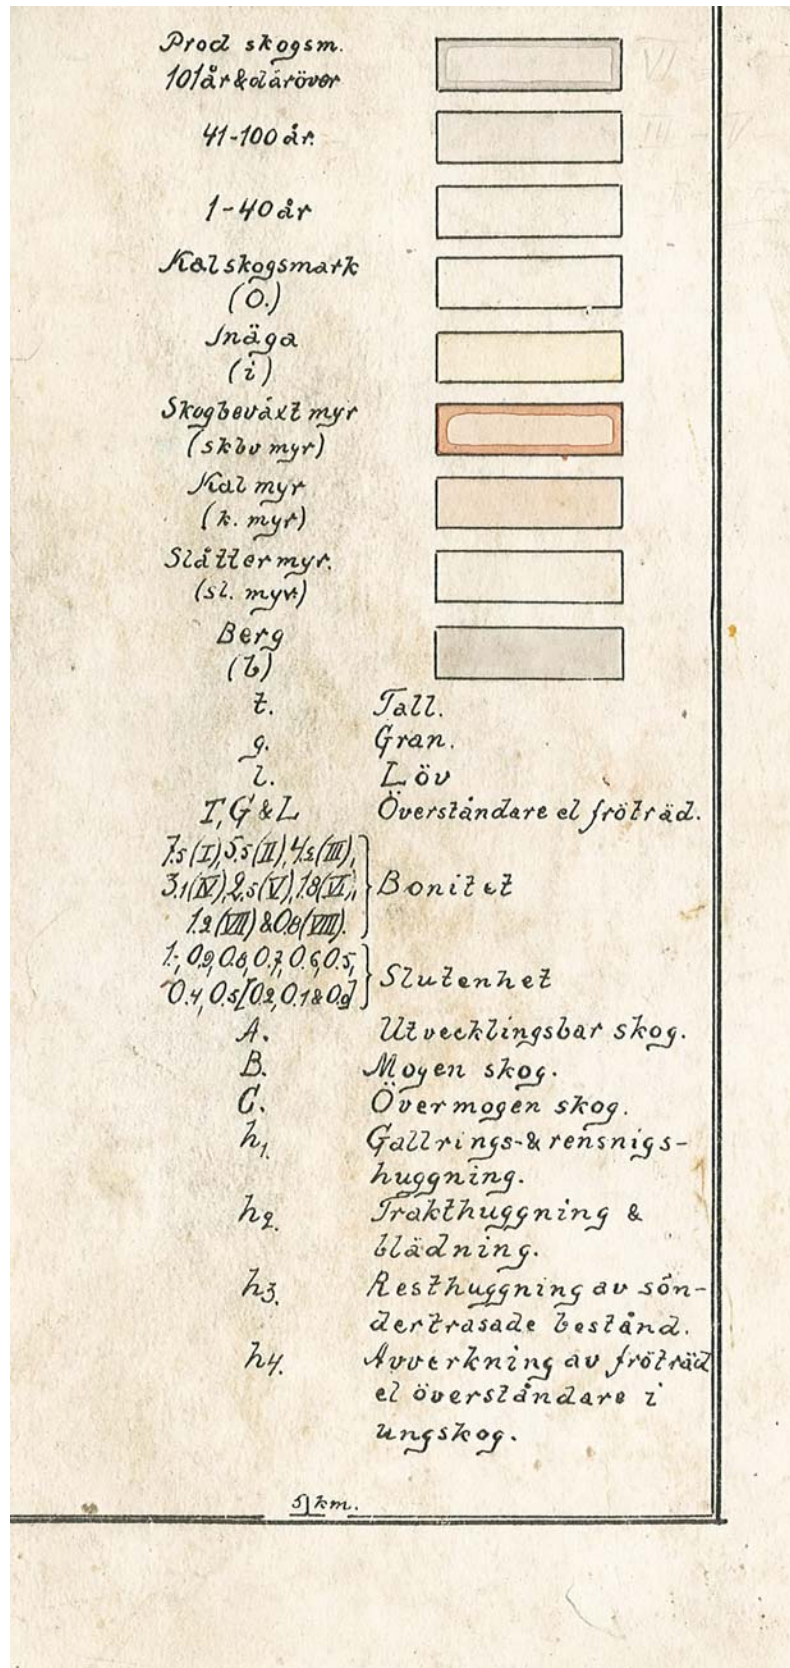 Prod skogsm.
101år & däröver
VI
41-100 år.
III - V
1-40 år
Kal skogsmark
(O.)
Inäga
(i)
Skogbeväxt myr
(skbv myr)
Kal myr
(k. myr)
Slåtter myr.
(sl. myr)
Berg
(b)
t. Tall.
g. Gran.
l. Löv
T, G & L Överståndare el fröträd.
7.5 (I), 5.5 (II), 4.5 (III),
3.1 (IV), 2.5 (V), 1.8 (VI), Bonitet
1.2 (VII) & 0.8 (VIII).
1., 0.9, 0.8, 0.7, 0.6, 0.5, Slutenhet
0.4, 0.3 [0.2, 0.1 & 0.0]
A. Utvecklingsbar skog.
B. Mogen skog.
C. Övermogen skog.
h1. Gallrings- & rensnigs-
huggning.
h2. Trakthuggning &
blädning.
h3. Resthuggning av sön-
dertrasade bestånd.
h4. Avverkning av fröträd
el överståndare i
ungskog.
5 km.